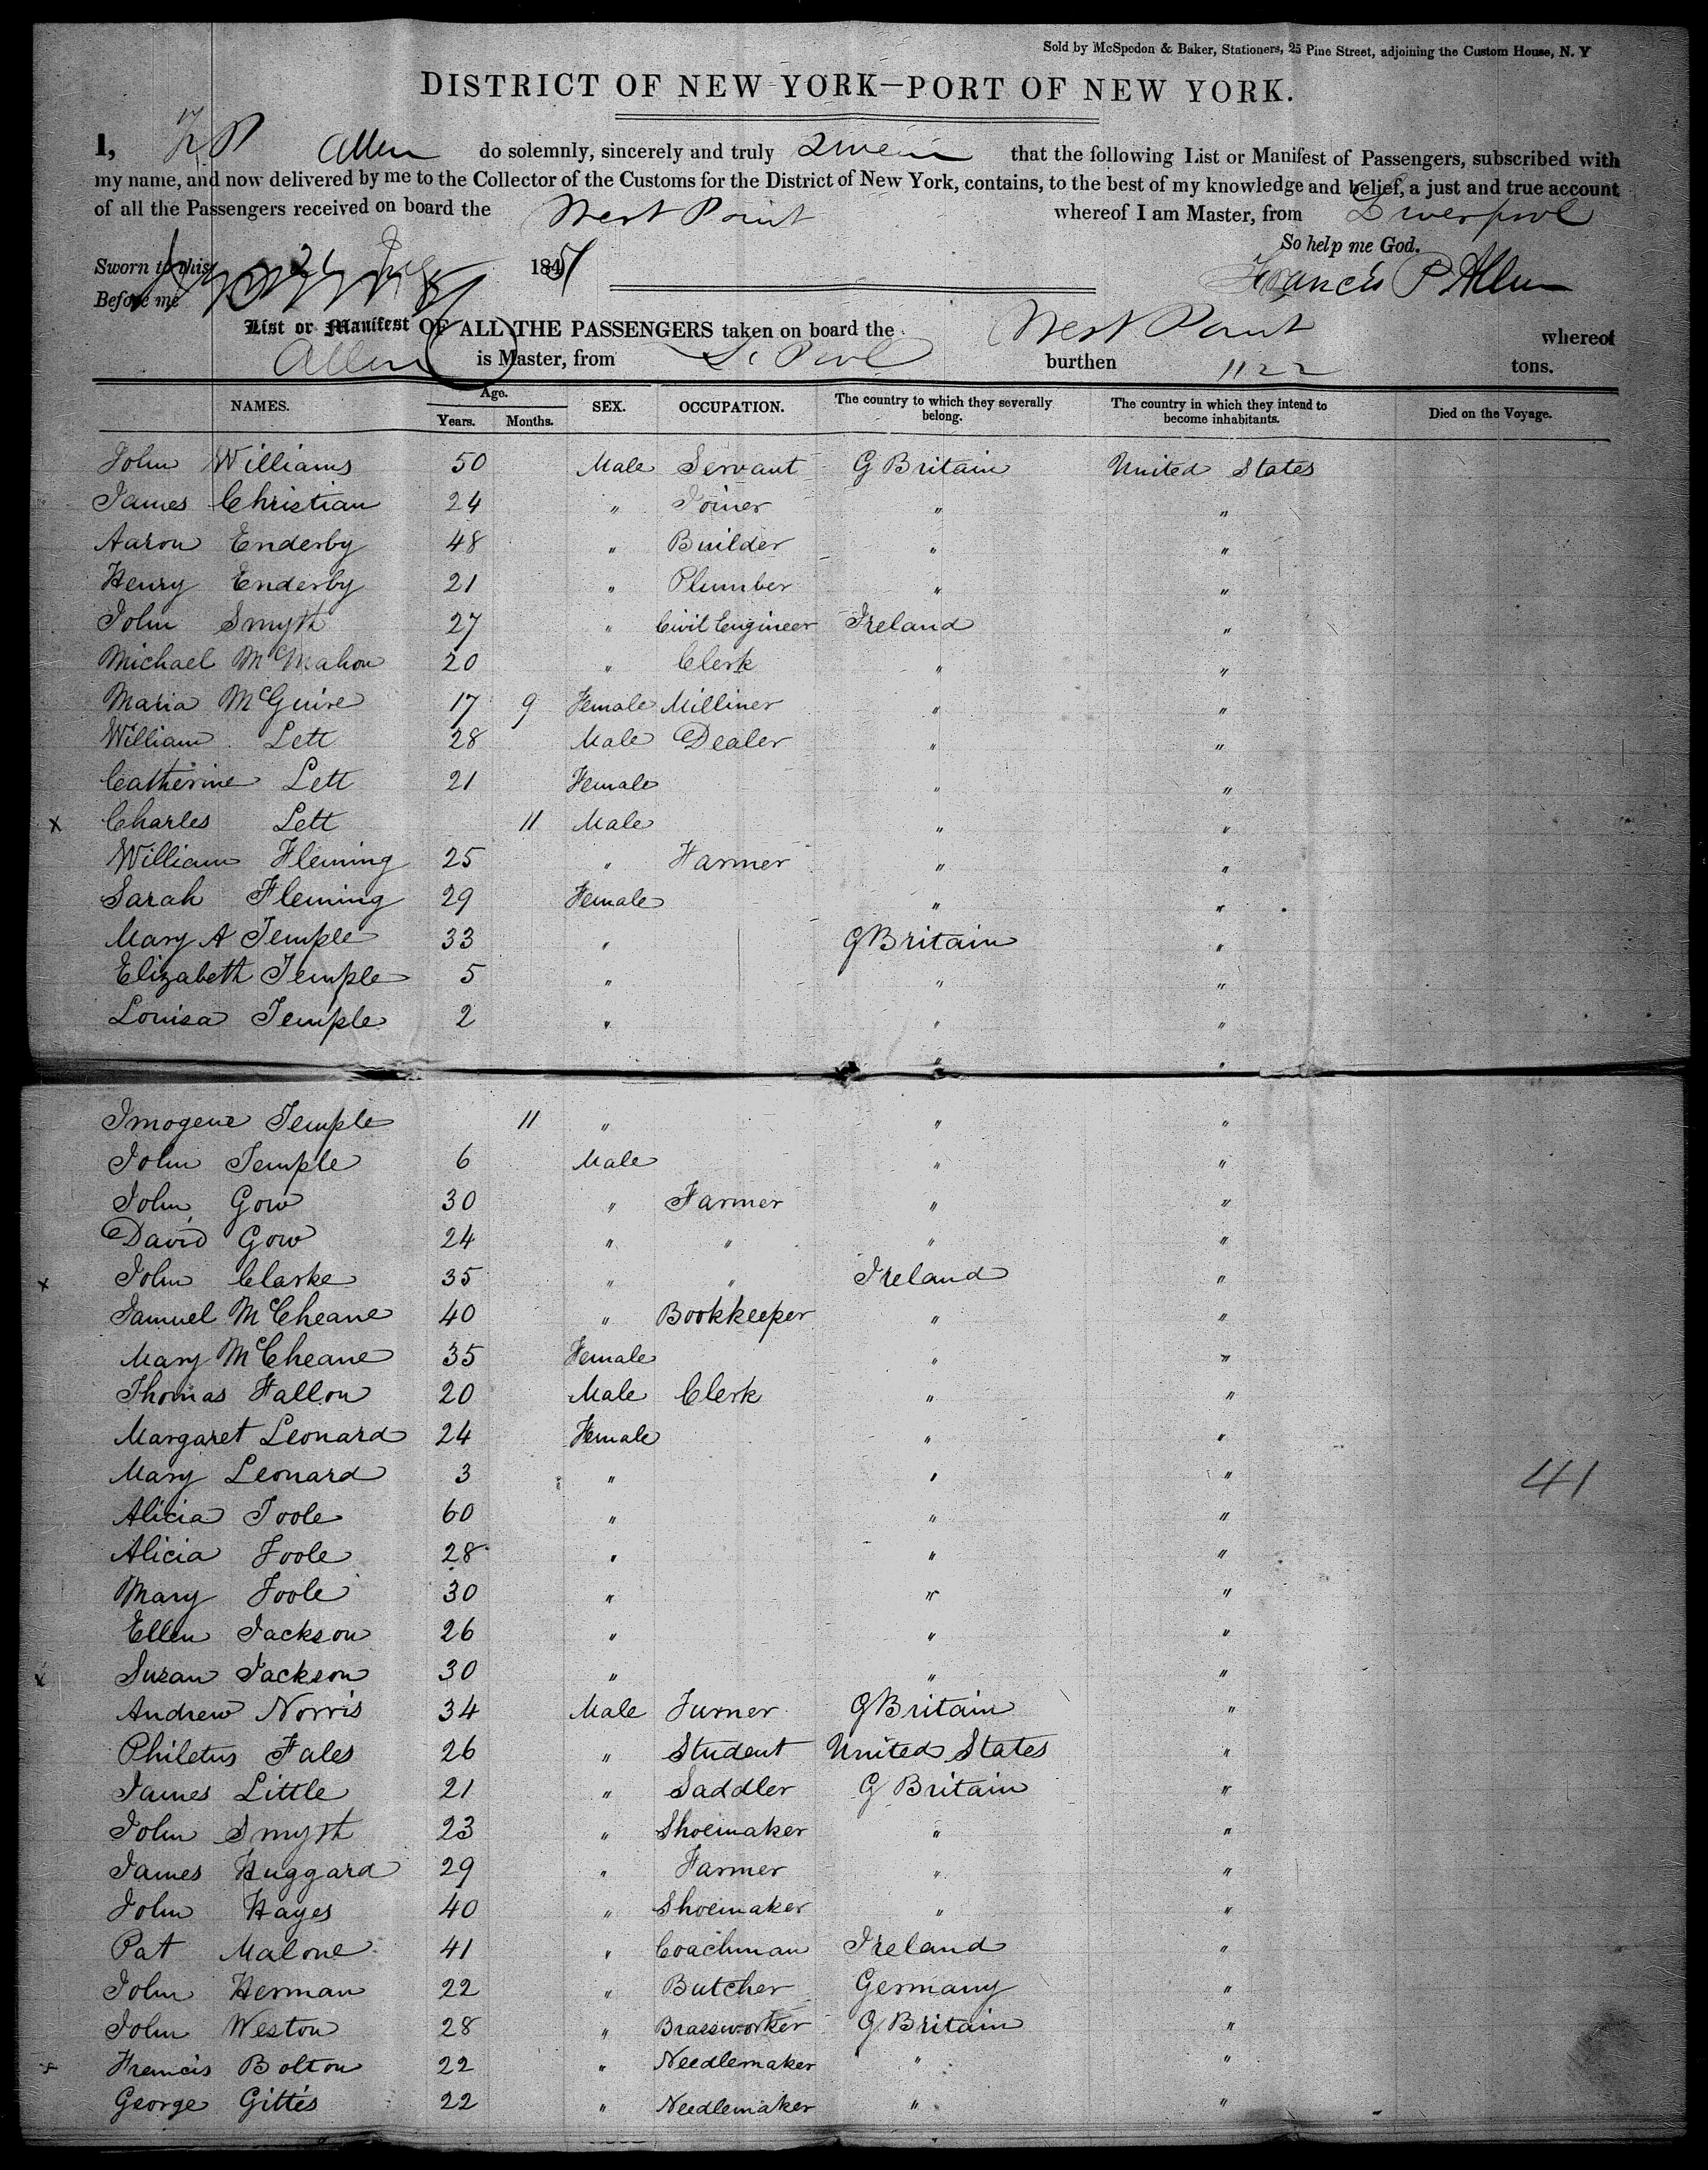 Sold by McSpedon & Baker, Stationers, 25 Pine Street, adjoining the Custom House, N. Y
DISTRICT OF NEW YORK—PORT OF NEW YORK.
I, F P Allen do solemnly, sincerely and truly Swear that the following List or Manifest of Passengers, subscribed with
my name, and now delivered by me to the Collector of the Customs for the District of New York, contains, to the best of my knowledge and belief, a just and true account
of all the Passengers received on board the West Point whereof I am Master, from Liverpool
So help me God.
Sworn to this 184
Francis P Allen
Before me
List or Manifest OF ALL THE PASSENGERS taken on board the West Point whereof
Allen is Master, from L. Pool burthen 1122 tons.
NAMES. Age. Years. Months. SEX. OCCUPATION. The country to which they severally belong. The country in which they intend to become inhabitants. Died on the Voyage.
John Williams 50 Male Servant G Britain United States
James Christian 24 " Joiner " "
Aaron Enderby 48 " Builder " "
Henry Enderby 21 " Plumber " "
John Smyth 27 " Civil Engineer Ireland "
Michael McMahon 20 " Clerk " "
Maria McGuire 17 9 Female Milliner " "
William Lett 28 Male Dealer " "
Catherine Lett 21 Female " "
x Charles Lett 11 Male " "
William Fleming 25 " Farmer " "
Sarah Fleming 29 Female " "
Mary A Temple 33 " G Britain "
Elizabeth Temple 5 " " "
Louisa Temple 2 " " "
" "
Imogene Temple 11 " " "
John Temple 6 Male " "
John Gow 30 " Farmer " "
David Gow 24 " " " "
x John Clarke 35 " " Ireland "
Samuel McCheane 40 " Bookkeeper " "
Mary McCheane 35 Female " "
Thomas Fallon 20 Male Clerk " "
Margaret Leonard 24 Female " "
Mary Leonard 3 " " " 41
Alicia Toole 60 " " "
Alicia Toole 28 " " "
Mary Toole 30 " " "
Ellen Jackson 26 " " "
x Susan Jackson 30 " " "
Andrew Norris 34 Male Turner G Britain "
Philetus Fales 26 " Student United States "
James Little 21 " Saddler G Britain "
John Smyth 23 " Shoemaker " "
James Huggard 29 " Farmer " "
John Hayes 40 " Shoemaker " "
Pat Malone 41 " Coachman Ireland "
John Herman 22 " Butcher Germany "
John Weston 28 " Brassworker G Britain "
x Francis Bolton 22 " Needlemaker " "
George Gittes 22 " Needlemaker " "